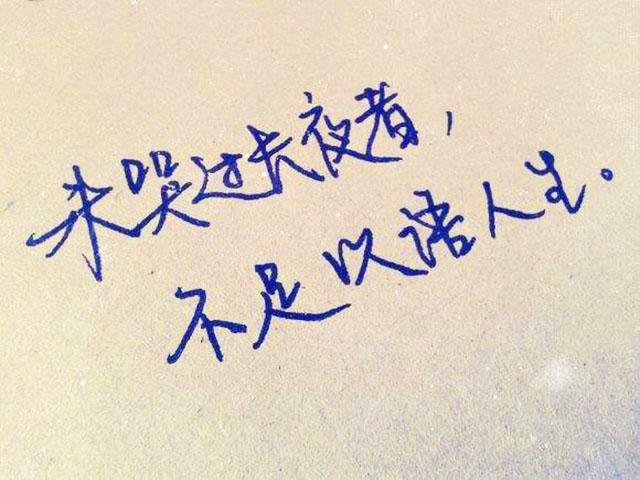 未哭过长夜者，
不足以语人生。